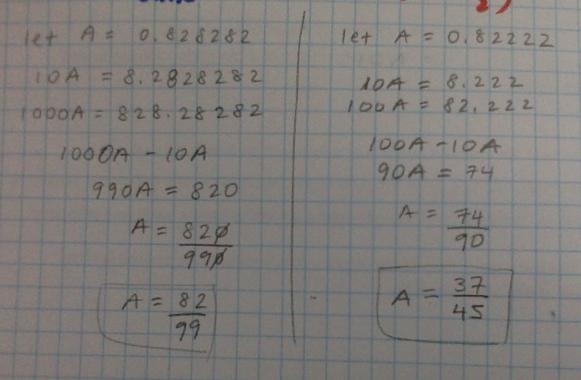 let A = 0.828282
10A = 8.2828282
1000A = 828.28282
1000A - 10A
990A = 820
A = 820/990
A = 82/99
2)
let A = 0.82222
10A = 8.222
100A = 82.222
100A - 10A
90A = 74
A = 74/90
A = 37/45